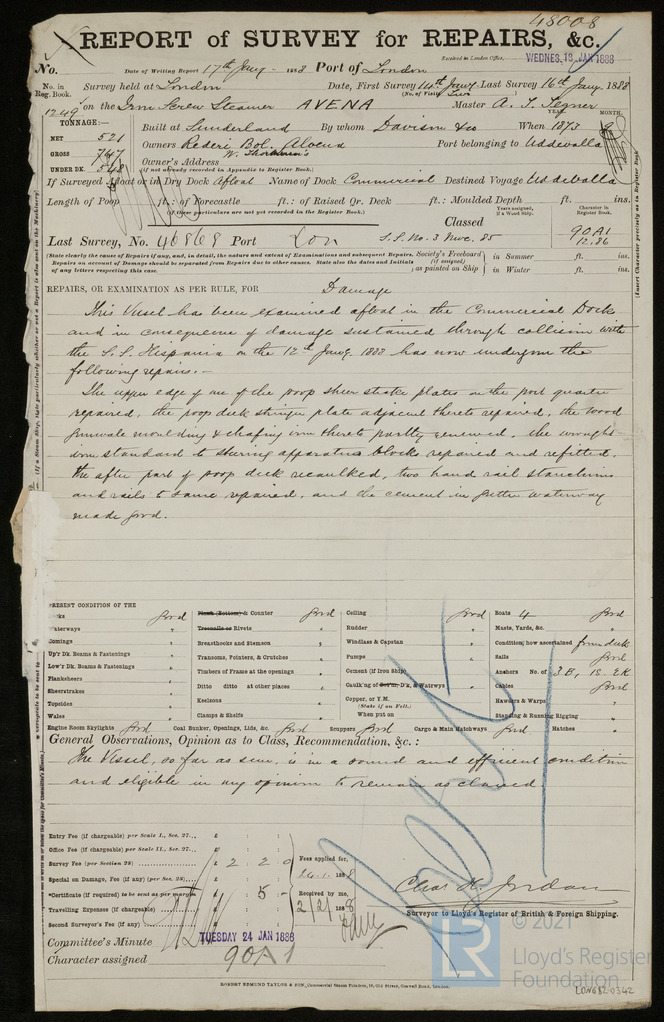 48008
REPORT of SURVEY for REPAIRS, &c.
Received in London Office, WEDNES. 18 JANY 1888
No. Date of Writing Report 17th Jany. 1888 Port of London
No. in Reg. Book. Survey held at London Date, First Survey 14th Jany. Last Survey 16th Jany. 1888
(No. of Visits Two)
1249 on the Iron Screw Steamer AVENA Master A. T. Segner
TONNAGE:—
YEAR. MONTH.
NET 521
Built at Sunderland By whom Davison & Co When 1873 8
GROSS 747
Owners Rederi Bol. Port belonging to Uddevalla
UNDER DK. 548
Owner's Address
(if not already recorded in Appendix to Register Book.)
If Surveyed Afloat or in Dry Dock Afloat Name of Dock Commercial Destined Voyage Uddevalla
Length of Poop ft.: of Forecastle ft.: of Raised Qr. Deck ft.: Moulded Depth ft. ins.
(If these particulars are not yet recorded in the Register Book.)
Years assigned, if a Wood Ship.
Character in Register Book.
Classed
Last Survey, No. 46869 Port Lon S.S. No. 3 Nov. 85 90A1 12.86
(State clearly the cause of Repairs if any, and, in detail, the nature and extent of Examinations and subsequent Repairs.
Repairs on account of Damage should be separated from Repairs due to other causes. State also the dates and Initials
of any letters respecting this case.
Society's Freeboard (if assigned) as painted on Ship
in Summer ft. ins.
in Winter ft. ins.
REPAIRS, OR EXAMINATION AS PER RULE, FOR Damage
This Vessel has been examined afloat in the Commercial Docks
and in consequence of damage sustained through collision with
the S.S. Hispania on the 12th Jany. 1888 has now undergone the
following repairs:-
The upper edge of one of the poop sheer strake plates on the port quarter
repaired, the poop deck stringer plate adjacent thereto repaired, the wood
gunwale moulding & chafing iron thereto partly renewed, the wrought
iron standard to steering apparatus blocks repaired and refitted,
the after part of poop deck recaulked, two hand rail stanchions
and rails to same repaired, and the cement in gutter waterway
made good.
PRESENT CONDITION OF THE
Decks good
Waterways "
Comings "
Up'r Dk. Beams & Fastenings "
Low'r Dk. Beams & Fastenings "
Planksheers "
Sheerstrakes "
Topsides "
Wales "
Engine Room Skylights good
Plank (Bottom) & Counter good
Treenails or Rivets "
Breasthooks and Stemson "
Transoms, Pointers, & Crutches "
Timbers of Frame at the openings "
Ditto ditto at other places "
Keelsons "
Clamps & Shelfs "
Coal Bunker, Openings, Lids, &c. good
Ceiling good
Rudder "
Windlass & Capstan "
Pumps "
Cement (if Iron Ship) "
Caulk'ng of Bot'm, D'k, & Watrwys "
Copper, or Y.M.
(State if on Felt.)
When put on
Scuppers good
Cargo & Main Hatchways good
Boats 4 good
Masts, Yards, &c. "
Condition; how ascertained from deck
Sails good
Anchors No. of 3B, 1S. 2K
Cables good
Hawsers & Warps "
Standing & Running Rigging "
Hatches "
General Observations, Opinion as to Class, Recommendation, &c.:
The Vessel, so far as seen, is in a sound and efficient condition
and eligible in my opinion to remain as classed.
Entry Fee (if chargeable) per Scale I., Sec. 27... £ : :
Office Fee (if chargeable) per Scale II., Sec. 27... £ : :
Survey Fee (per Section 28) £ 2 : 2 : 0
Special on Damage, Fee (if any) (per Sec. 28) £ : :
*Certificate (if required) to be sent as per margin £ : 5 : -
Travelling Expenses (if chargeable) £ : :
Second Surveyor's Fee (if any) £ : :
Fees applied for,
24.1.1888
Received by me,
2/2/1888
Chas H. Jordan
Surveyor to Lloyd's Register of British & Foreign Shipping.
Committee's Minute TUESDAY 24 JAN 1888
Character assigned 90A1
ROBERT EDMUND TAYLOR & SON, Commercial Steam Printers, 19, Old Street, Goswell Road, London.
© 2021
LR
Lloyd's Register
Foundation
LON682-0342
(Insert Character precisely as in Register Book)